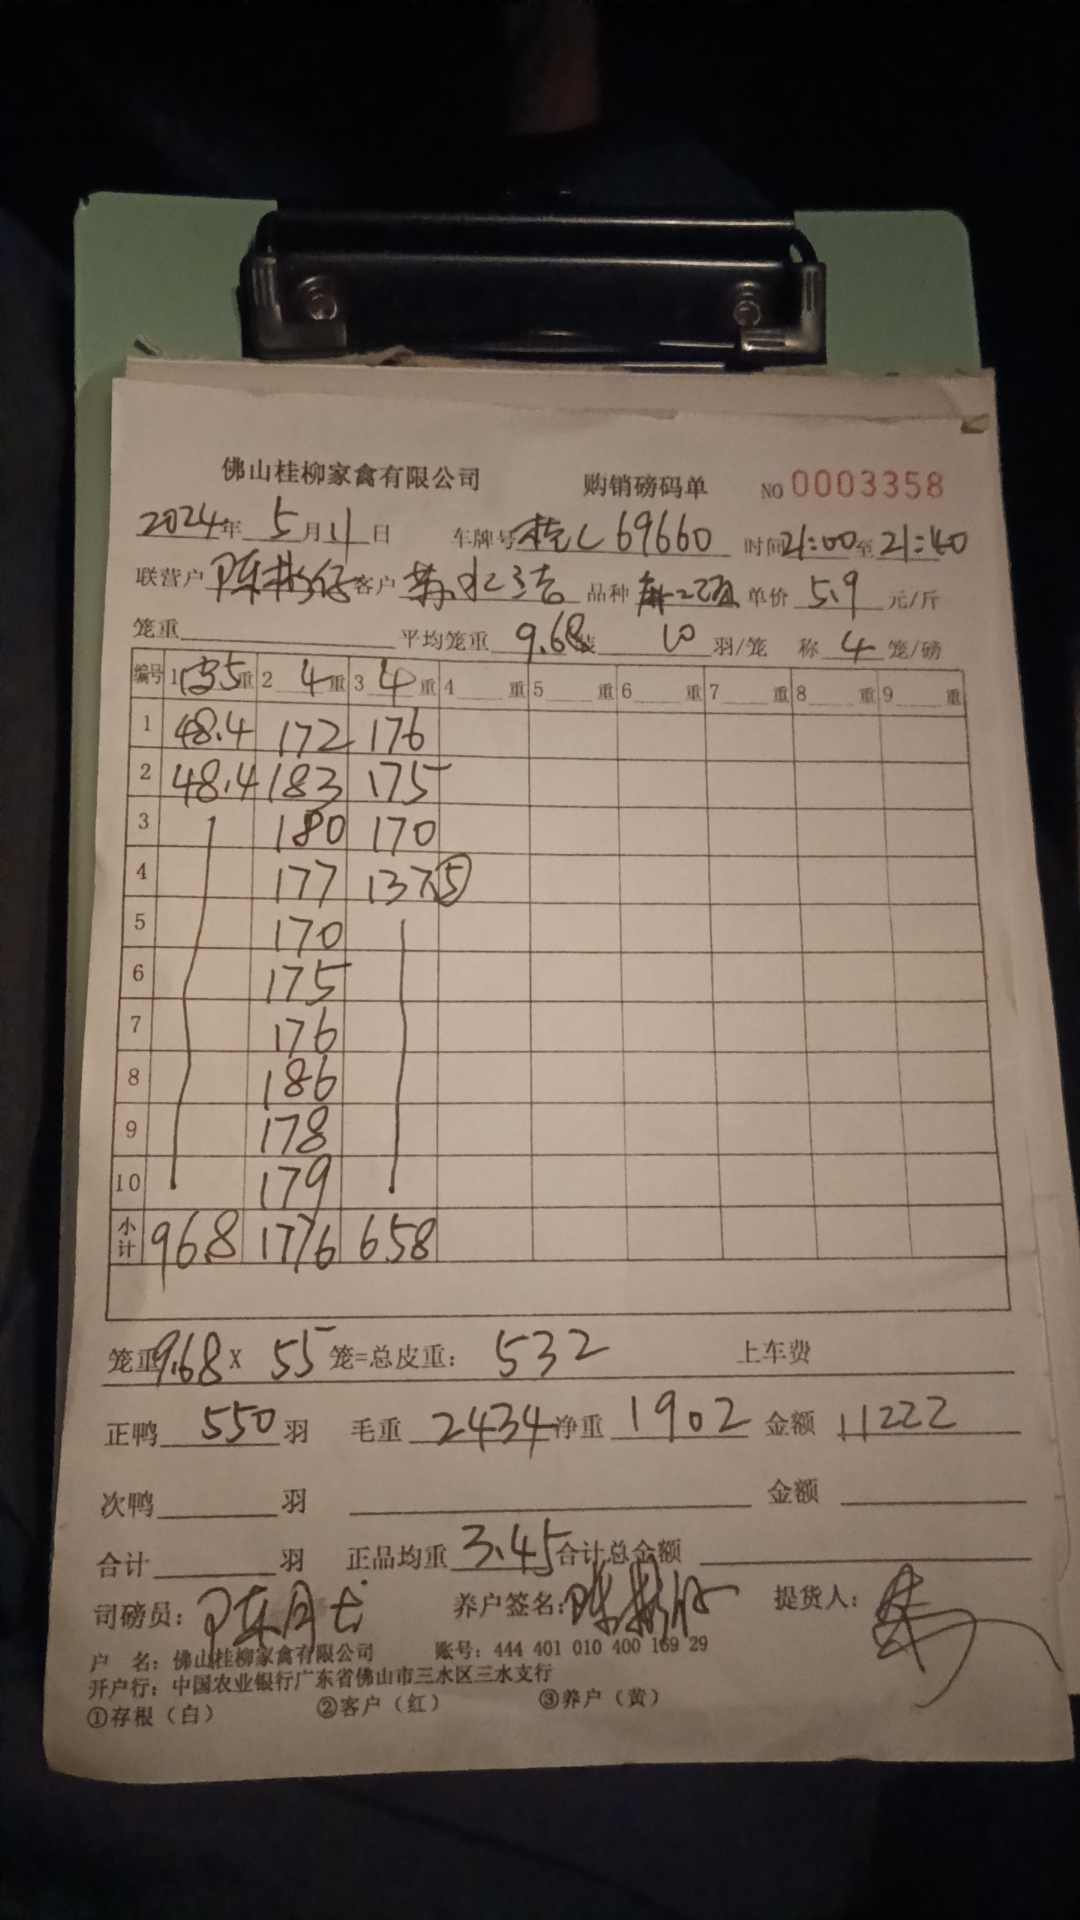 佛山桂柳家禽有限公司 购销磅码单 NO 0003358
2024年 5月 11日 车牌号 桂L69660 时间 21:00至21:40
联营户 陈彬仔 客户 品种 单价 5.9 元/斤
笼重 平均笼重 9.68 装 10 羽/笼 称 4 笼/磅
编号 1 皮5重 2 4重 3 4重 4 重 5 重 6 重 7 重 8 重 9 重
1 48.4 172 176
2 48.4 183 175
3 180 170
4 177 137 ⑤
5 170
6 175
7 176
8 186
9 178
10 179
小计 96.8 1776 658
笼重 9.68 X 55 笼=总皮重: 532 上车费
正鸭 550 羽 毛重 2434 净重 1902 金额 11222
次鸭 羽 金额
合计 羽 正品均重 3.45 合计总金额
司磅员: 养户签名: 陈彬仔 提货人:
户 名: 佛山桂柳家禽有限公司 账号: 444 401 010 400 169 29
开户行: 中国农业银行广东省佛山市三水区三水支行
①存根（白） ②客户（红） ③养户（黄）